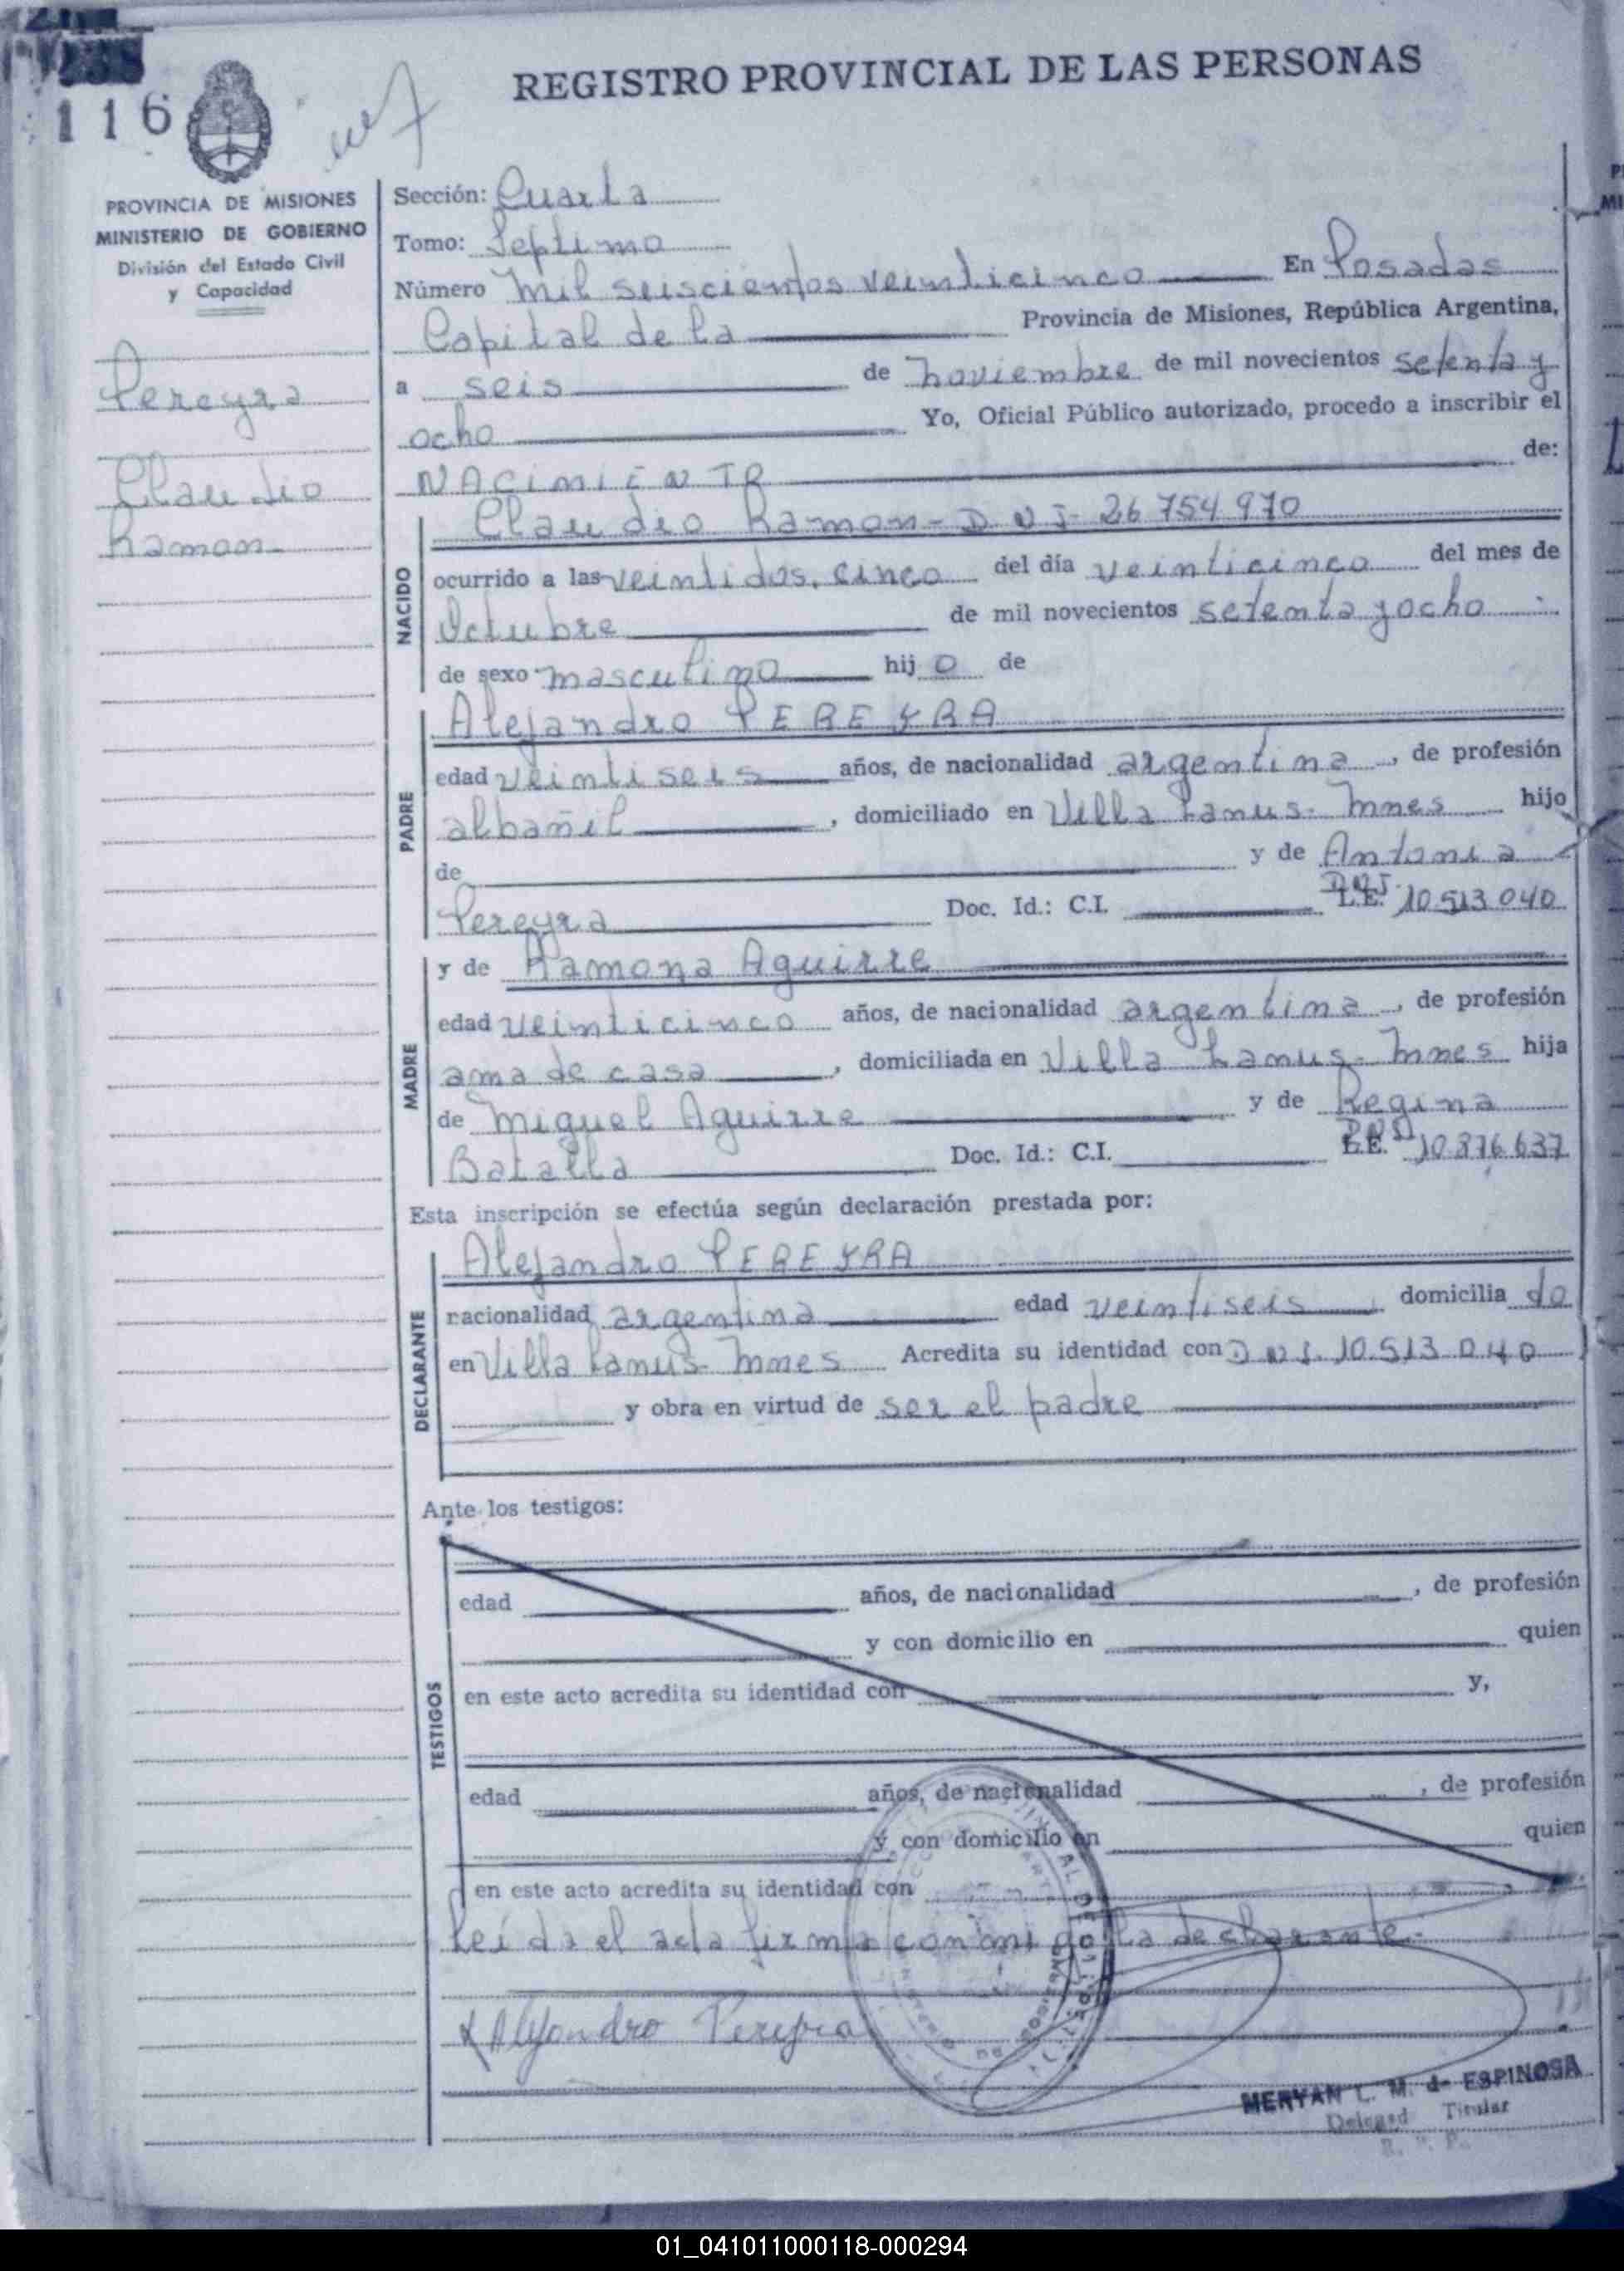 116
REGISTRO PROVINCIAL DE LAS PERSONAS
PROVINCIA DE MISIONES
MINISTERIO DE GOBIERNO
División del Estado Civil
y Capacidad
Pereyra
Claudio
Ramon
Sección: Cuarta
Tomo: Septimo
Número Mil seiscientos veinticinco En Posadas
Capital de la Provincia de Misiones, República Argentina,
a seis de noviembre de mil novecientos setenta y
ocho Yo, Oficial Público autorizado, procedo a inscribir el
NACIMIENTO de:
NACIDO
Claudio Ramon - D N I - 26 754 970
ocurrido a las veintidos, cinco del día veinticinco del mes de
Octubre de mil novecientos setenta y ocho
de sexo masculino hij o de
PADRE
Alejandro PEREYRA
edad veintiseis años, de nacionalidad argentina, de profesión
albañil, domiciliado en Villa Lanus - Mnes hijo
de y de Antonia
Pereyra Doc. Id.: C.I. L.E. DNI 10 513 040
MADRE
y de Ramona Aguirre
edad veinticinco años, de nacionalidad argentina, de profesión
ama de casa, domiciliada en Villa Lanus - Mnes hija
de Miguel Aguirre y de Regina
Batalla Doc. Id.: C.I. L.E. DNI 10 876 637
Esta inscripción se efectúa según declaración prestada por:
DECLARANTE
Alejandro PEREYRA
nacionalidad argentina edad veintiseis domicilia do
en Villa Lanus - Mnes Acredita su identidad con D N I. 10.513 040
y obra en virtud de ser el padre
Ante los testigos:
TESTIGOS
edad años, de nacionalidad , de profesión
y con domicilio en quien
en este acto acredita su identidad con y,
edad años, de nacionalidad , de profesión
y con domicilio en quien
en este acto acredita su identidad con
Leída el acta firma conmigo la declarante.
Alejandro Pereyra
MERYAN L. M. de ESPINOSA
Delegad Titular
R. P. P.
01_041011000118-000294